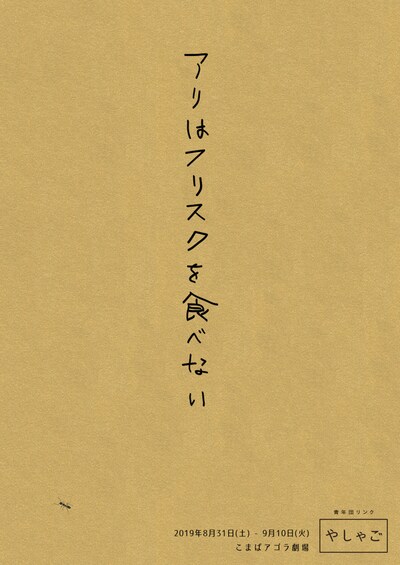 アリはフリスクを食べない
青年団リンク
やしゃご
2019年8月31日(土) - 9月10日(火)
こまばアゴラ劇場